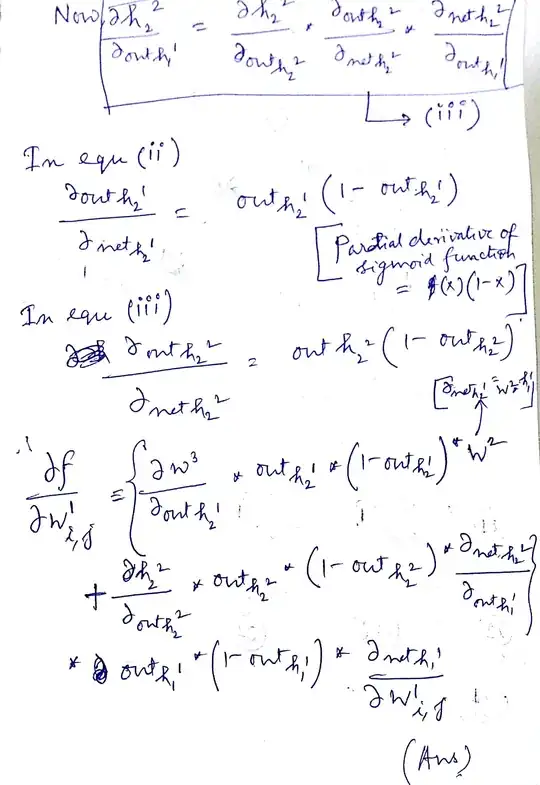 Now, ∂h₂²/∂out h₁¹ = ∂h₂²/∂out h₂² * ∂out h₂²/∂net h₂² * ∂net h₂²/∂out h₁¹
→ (iii)
In equ (ii)
∂out h₂¹/∂net h₂¹ = out h₂¹ (1 - out h₂¹)
[Partial derivative of
sigmoid function
= f(x)(1-x)]
In equ (iii)
∂out h₂²/∂net h₂² = out h₂² (1 - out h₂²)
[∂net h₂¹ = w² * h₁¹]
∂f/∂w¹i,j = { ∂w³/∂out h₂¹ * out h₂¹ * (1 - out h₂¹) * w²
+ ∂h₂²/∂out h₂² * out h₂² * (1 - out h₂²) * ∂net h₂²/∂out h₁¹ }
* out h₁¹ * (1 - out h₁¹) * ∂net h₁¹/∂w¹i,j
(Ans)